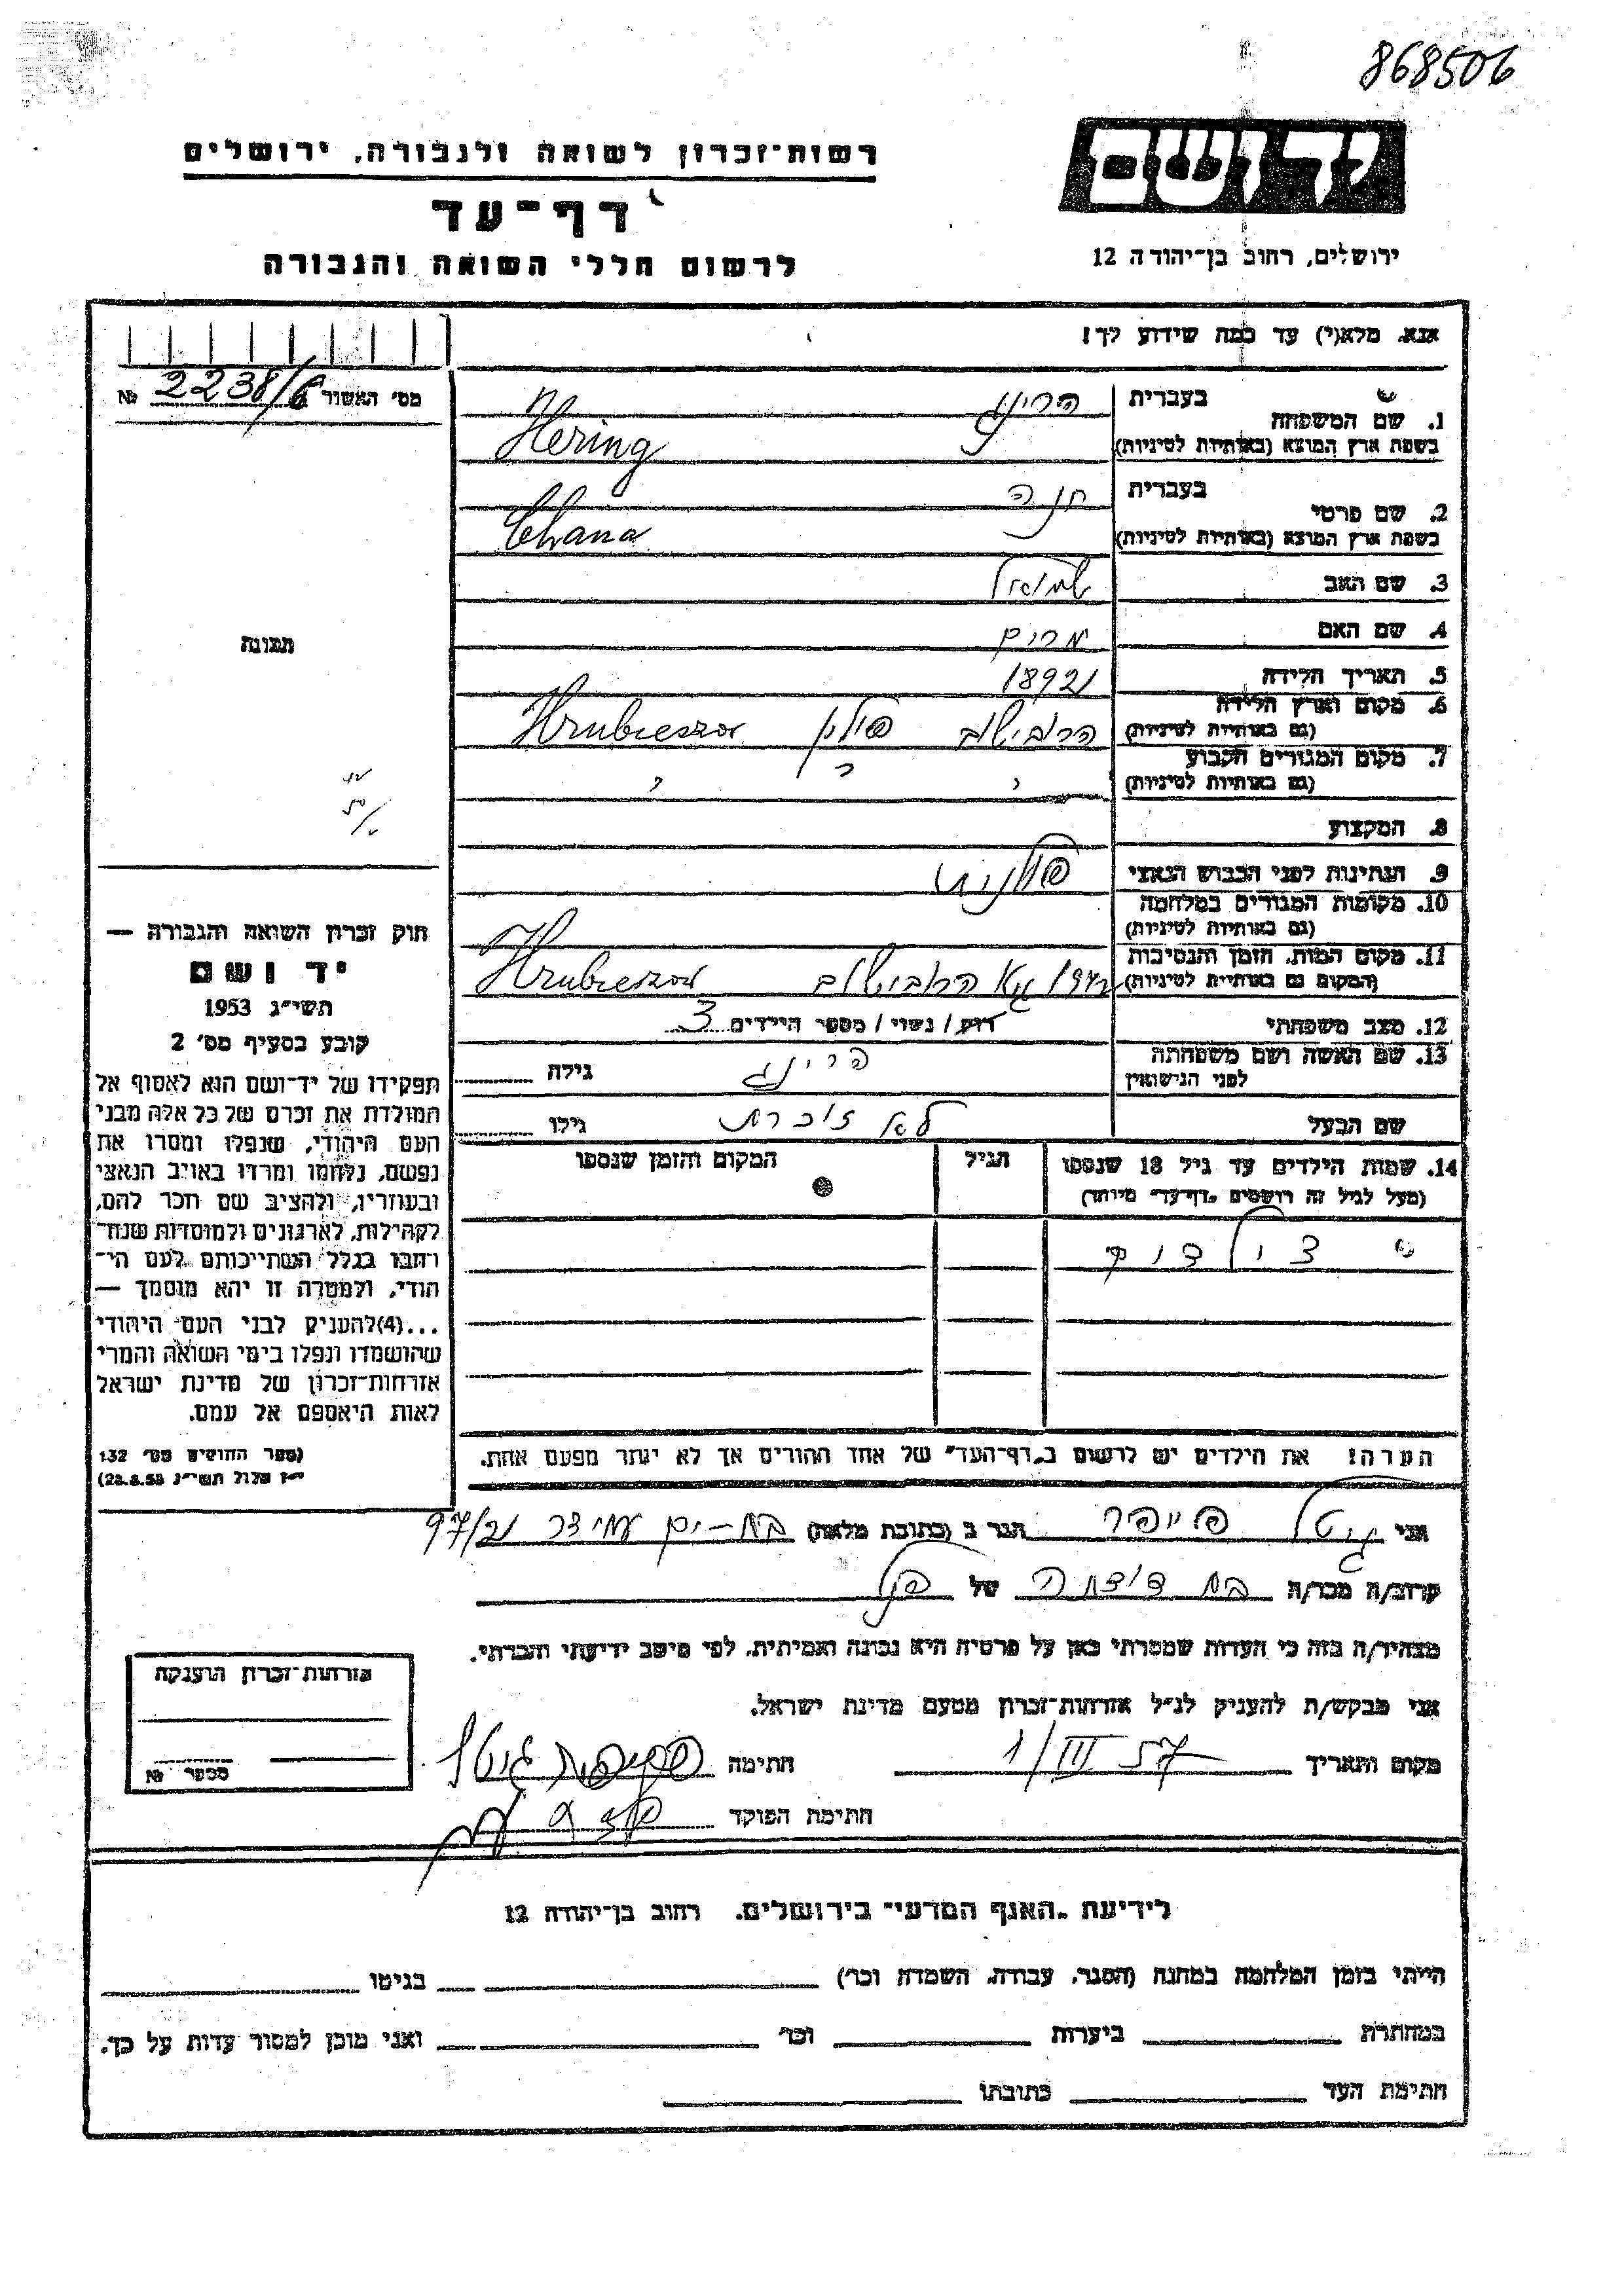 868506
רשות־זכרון לשואה ולגבורה, ירושלים
דף־עד
לרשום חללי השואה והגבורה
יד ושם
ירושלים, רחוב בן־יהודה 12
אנא, מלא(י) עד כמה שידוע לך!
מס׳ האשור 2238/6 №
1. שם המשפחה
בעברית הרינג
בשפת ארץ המוצא (באותיות לטיניות) Hering
2. שם פרטי
בעברית חנה
בשפת ארץ המוצא (באותיות לטיניות) Chana
3. שם האב שמואל
4. שם האם מרים
5. תאריך הלידה 1892
6. מקום וארץ הלידה
(גם באותיות לטיניות) הרובישוב פולין Hrubieszow
7. מקום המגורים הקבוע
(גם באותיות לטיניות) " " "
8. המקצוע
9. הנתינות לפני הכבוש הנאצי פולנית
10. מקומות המגורים במלחמה
(גם באותיות לטיניות)
11. מקום המות, הזמן והנסיבות
(המקום גם באותיות לטיניות) הרובישוב Hrubieszow
12. מצב משפחתי רווק/ נשוי/ מספר הילדים 3
13. שם האשה ושם משפחתה
לפני הנישואין הרינג גילה
שם הבעל לא זוכרת גילו
14. שמות הילדים עד גיל 18 שנספו
(מעל לגיל זה רושמים "דף־עד" מיוחד)
הגיל
המקום והזמן שנספו
הערה! את הילדים יש לרשום ב"דף־העד" של אחד ההורים אך לא יותר מפעם אחת.
תמונה
חוק זכרון השואה והגבורה —
יד ושם
תשי״ג 1953
קובע בסעיף מס׳ 2
תפקידו של יד־ושם הוא לאסוף אל
המולדת את זכרם של כל אלה מבני
העם היהודי, שנפלו ומסרו את
נפשם, נלחמו ומרדו באויב הנאצי
ובעוזריו, ולהציב שם וזכר להם,
לקהילות, לארגונים ולמוסדות שנח־
רבו בגלל השתייכותם לעם הי־
הודי, ולמטרה זו יהא מוסמך —
...(4)להעניק לבני העם היהודי
שהושמדו ונפלו בימי השואה והמרי
אזרחות־זכרון של מדינת ישראל
לאות היאספם אל עמם.
(ספר החוקים מס׳ 132
י״ז אלול תשי״ג 28.8.53)
אני גיטל פייפר הגר ב (כתובת מלאה) בת-ים עמידר 97/21
קרוב/ה מכר/ה בת דודה של
מצהיר/ה בזה כי העדות שמסרתי כאן על פרטיה היא נכונה ואמיתית, לפי מיטב ידיעתי והכרתי.
אני מבקש/ת להעניק לנ״ל אזרחות־זכרון מטעם מדינת ישראל.
מקום ותאריך 1/III 57 חתימה
חתימת הפוקד
אזרחות־זכרון הוענקה
מספר №
לידיעת "האגף המדעי" בירושלים, רחוב בן־יהודה 12
הייתי בזמן המלחמה במחנה (הסגר, עבודה, השמדה וכו׳) בגיטו
במחתרת ביערות וכו׳ ואני מוכן למסור עדות על כך.
חתימת העד כתובתו